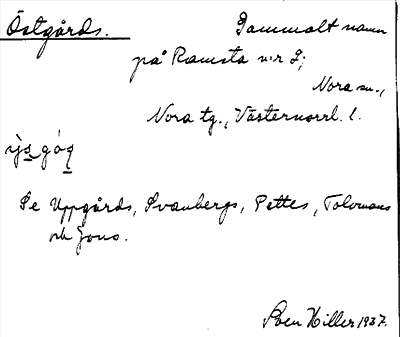 Östgårds. Gammalt namn
på Ramsta nr 2;
Nora sn.,
Nora tg., Västernorrl. l.
Se Uppgårds, Svanbergs, Pettes, Tolvmans
och Jons.
Sven Hiller 1937.